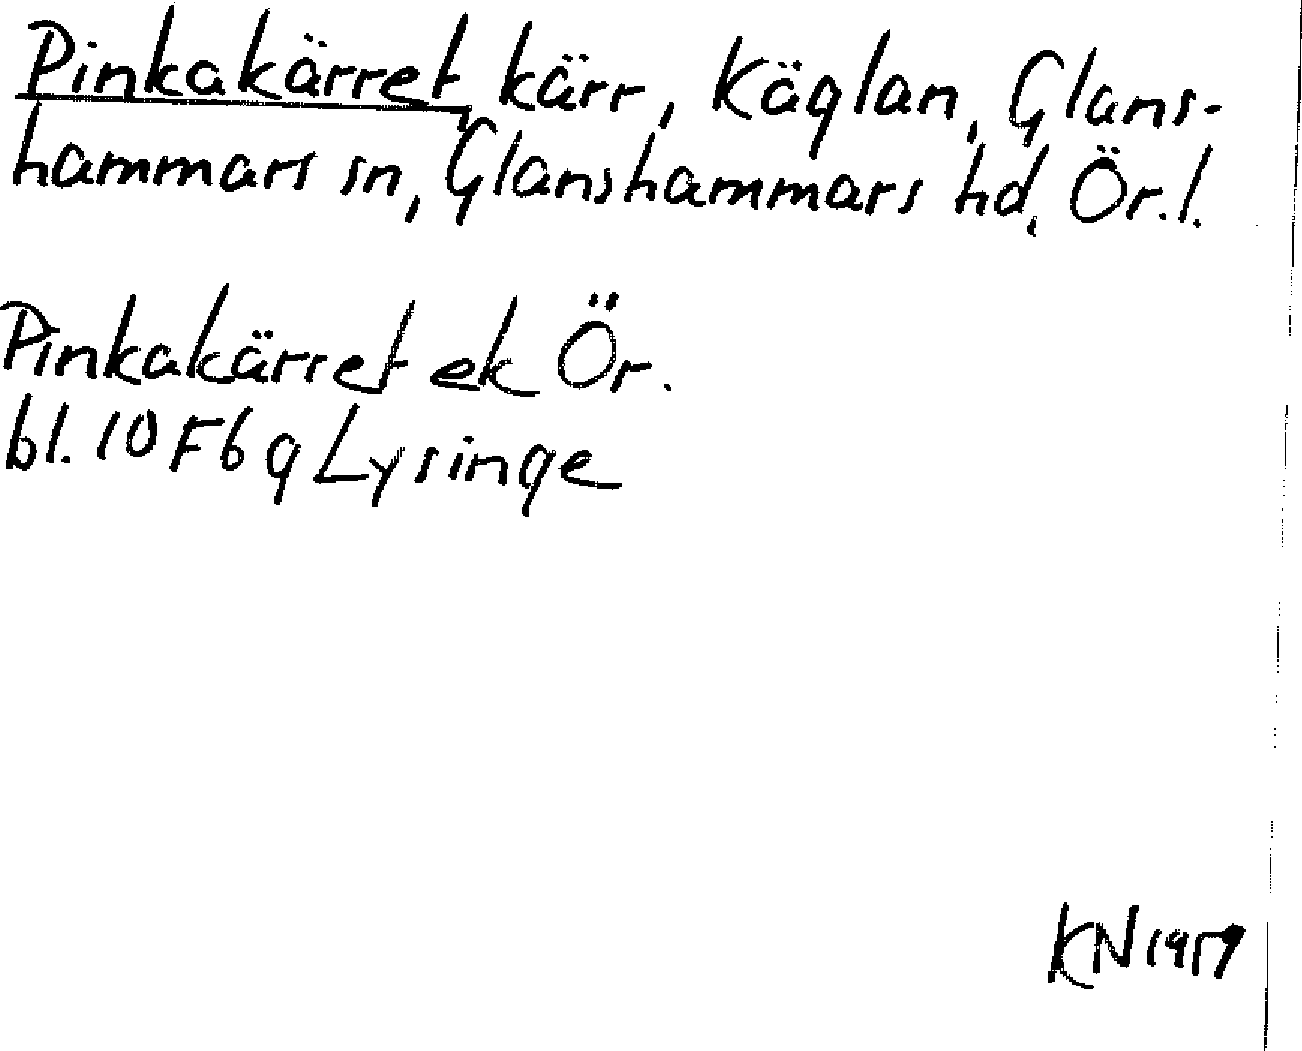 Pinkakärret, kärr, Käglan, Glans-
hammars sn, Glanshammars hd, Ör.l.
Pinkakärret ek Ör.
bl. 10 F 6 g Lysinge
KN